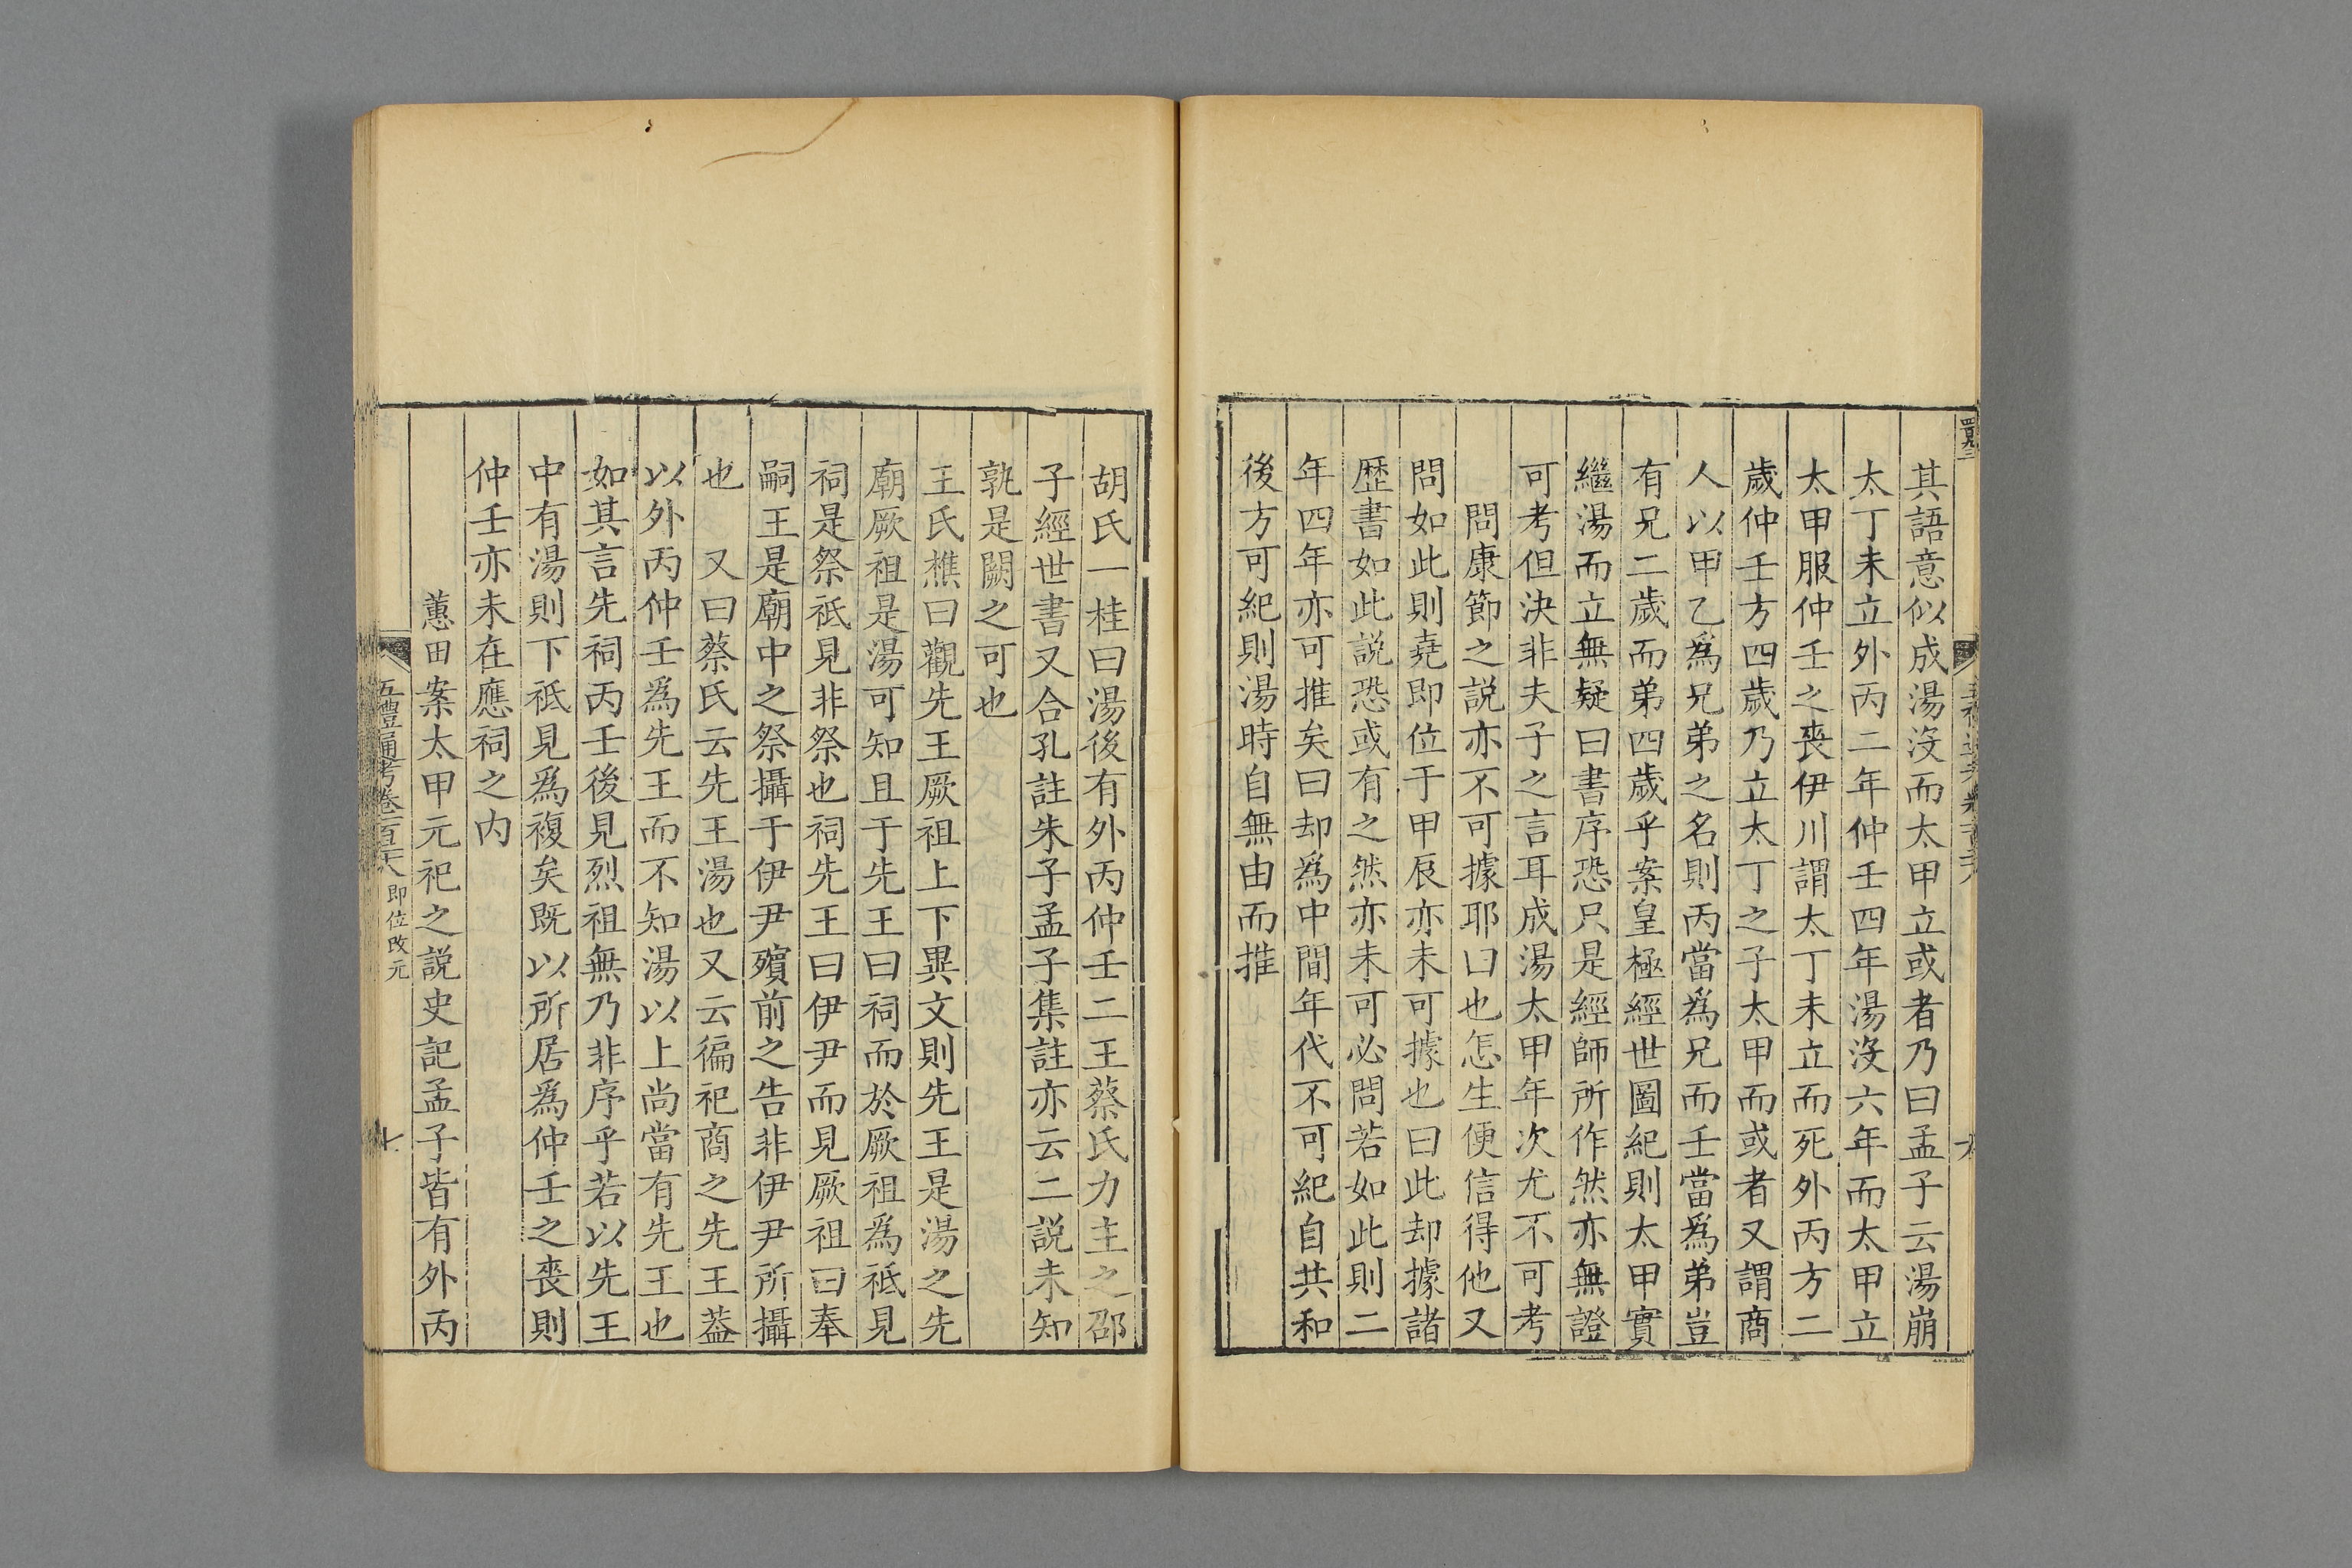 其語意似成湯沒而太甲立或者乃曰孟子云湯崩
太丁未立外丙二年仲壬四年湯沒六年而太甲立
太甲服仲壬之喪伊川謂太丁未立而死外丙方二
歲仲壬方四歲乃立太丁之子太甲而或者又謂商
人以甲乙爲兄弟之名則丙當爲兄而壬當爲弟豈
有兄二歲而弟四歲乎案皇極經世圖紀則太甲實
繼湯而立無疑曰書序恐只是經師所作然亦無證
可考但決非夫子之言耳成湯太甲年次尤不可考
問康節之説亦不可據耶曰也怎生便信得他又
問如此則堯即位于甲辰亦未可據也曰此却據諸
歴書如此説恐或有之然亦未可必問若如此則二
年四年亦可推矣曰却爲中間年代不可紀自共和
後方可紀則湯時自無由而推
胡氏一桂曰湯後有外丙仲壬二王蔡氏力主之邵
子經世書又合孔註朱子孟子集註亦云二説未知
孰是闕之可也
王氏樵曰觀先王厥祖上下異文則先王是湯之先
廟厥祖是湯可知且于先王曰祠而於厥祖爲祗見
祠是祭祗見非祭也祠先王曰伊尹而見厥祖曰奉
嗣王是廟中之祭攝于伊尹殯前之告非伊尹所攝
也　又曰蔡氏云先王湯也又云徧祀商之先王葢
以外丙仲壬爲先王而不知湯以上尚當有先王也
如其言先祠丙壬後見烈祖無乃非序乎若以先王
中有湯則下祗見爲複矣既以所居爲仲壬之喪則
仲壬亦未在應祠之内
蕙田案太甲元祀之説史記孟子皆有外丙
五禮通考卷一百二十八　即位改元　七